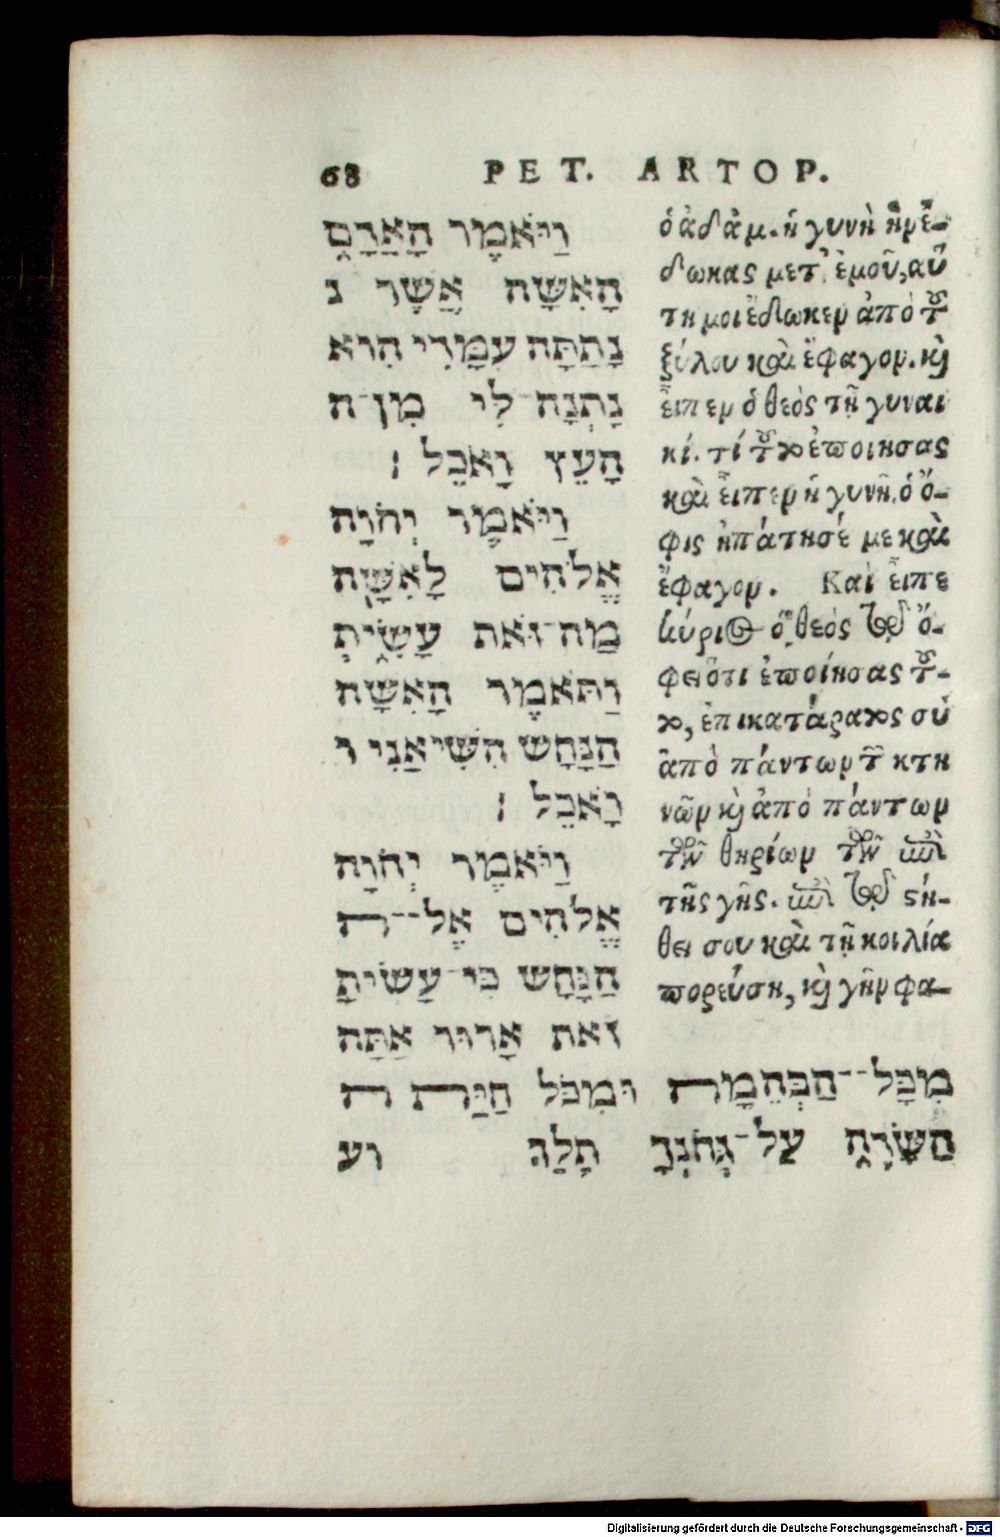 68 PET. ARTOP.
וַיֹּאמֶר הָאָדָם
הָאִשָּׁה אֲשֶׁר נ
נָתַתָּה עִמָּדִי הִוא
נָתְנָה־לִּי מִן־ה
הָעֵץ וָאֹכֵל ׃
וַיֹּאמֶר יְהֹוָה
אֱלֹהִים לָאִשָּׁה
מַה־זֹּאת עָשִׂית
וַתֹּאמֶר הָאִשָּׁה
הַנָּחָשׁ הִשִּׁיאַנִי ו
וָאֹכֵל ׃
וַיֹּאמֶר יְהֹוָה
אֱלֹהִים אֶל־־ה
הַנָּחָשׁ כִּי־עָשִׂיתָ
זֹאת אָרוּר אַתָּה
מִכָּל־־הַבְּהֵמָה וּמִכֹּל חַיַּת ה
הַשָּׂדֶה עַל־גְּחֹנְךָ תֵלֵךְ וע
ὁ ἀδάμ. ἡ γυνὴ ἣν ἔ-
δωκας μετ' ἐμοῦ, αὕ
τη μοι ἔδωκεν ἀπὸ τοῦ
ξύλου καὶ ἔφαγον. καὶ
εἶπεν ὁ θεὸς τῇ γυναι
κί. τί τοῦτο ἐποίησας
καὶ εἶπεν ἡ γυνή. ὁ ὄ-
φις ἠπάτησέ με καὶ
ἔφαγον. Καὶ εἶπε
κύριος ὁ θεὸς τῷ ὄ-
φει ὅτι ἐποίησας τοῦ-
το, ἐπικατάρατος σὺ
ἀπὸ πάντων τῶν κτη
νῶν καὶ ἀπὸ πάντων
τῶν θηρίων τῶν ἐπὶ
τῆς γῆς. ἐπὶ τῷ στή-
θει σου καὶ τῇ κοιλίᾳ
πορεύσῃ, καὶ γῆν φα-
Digitalisierung gefördert durch die Deutsche Forschungsgemeinschaft - DFG